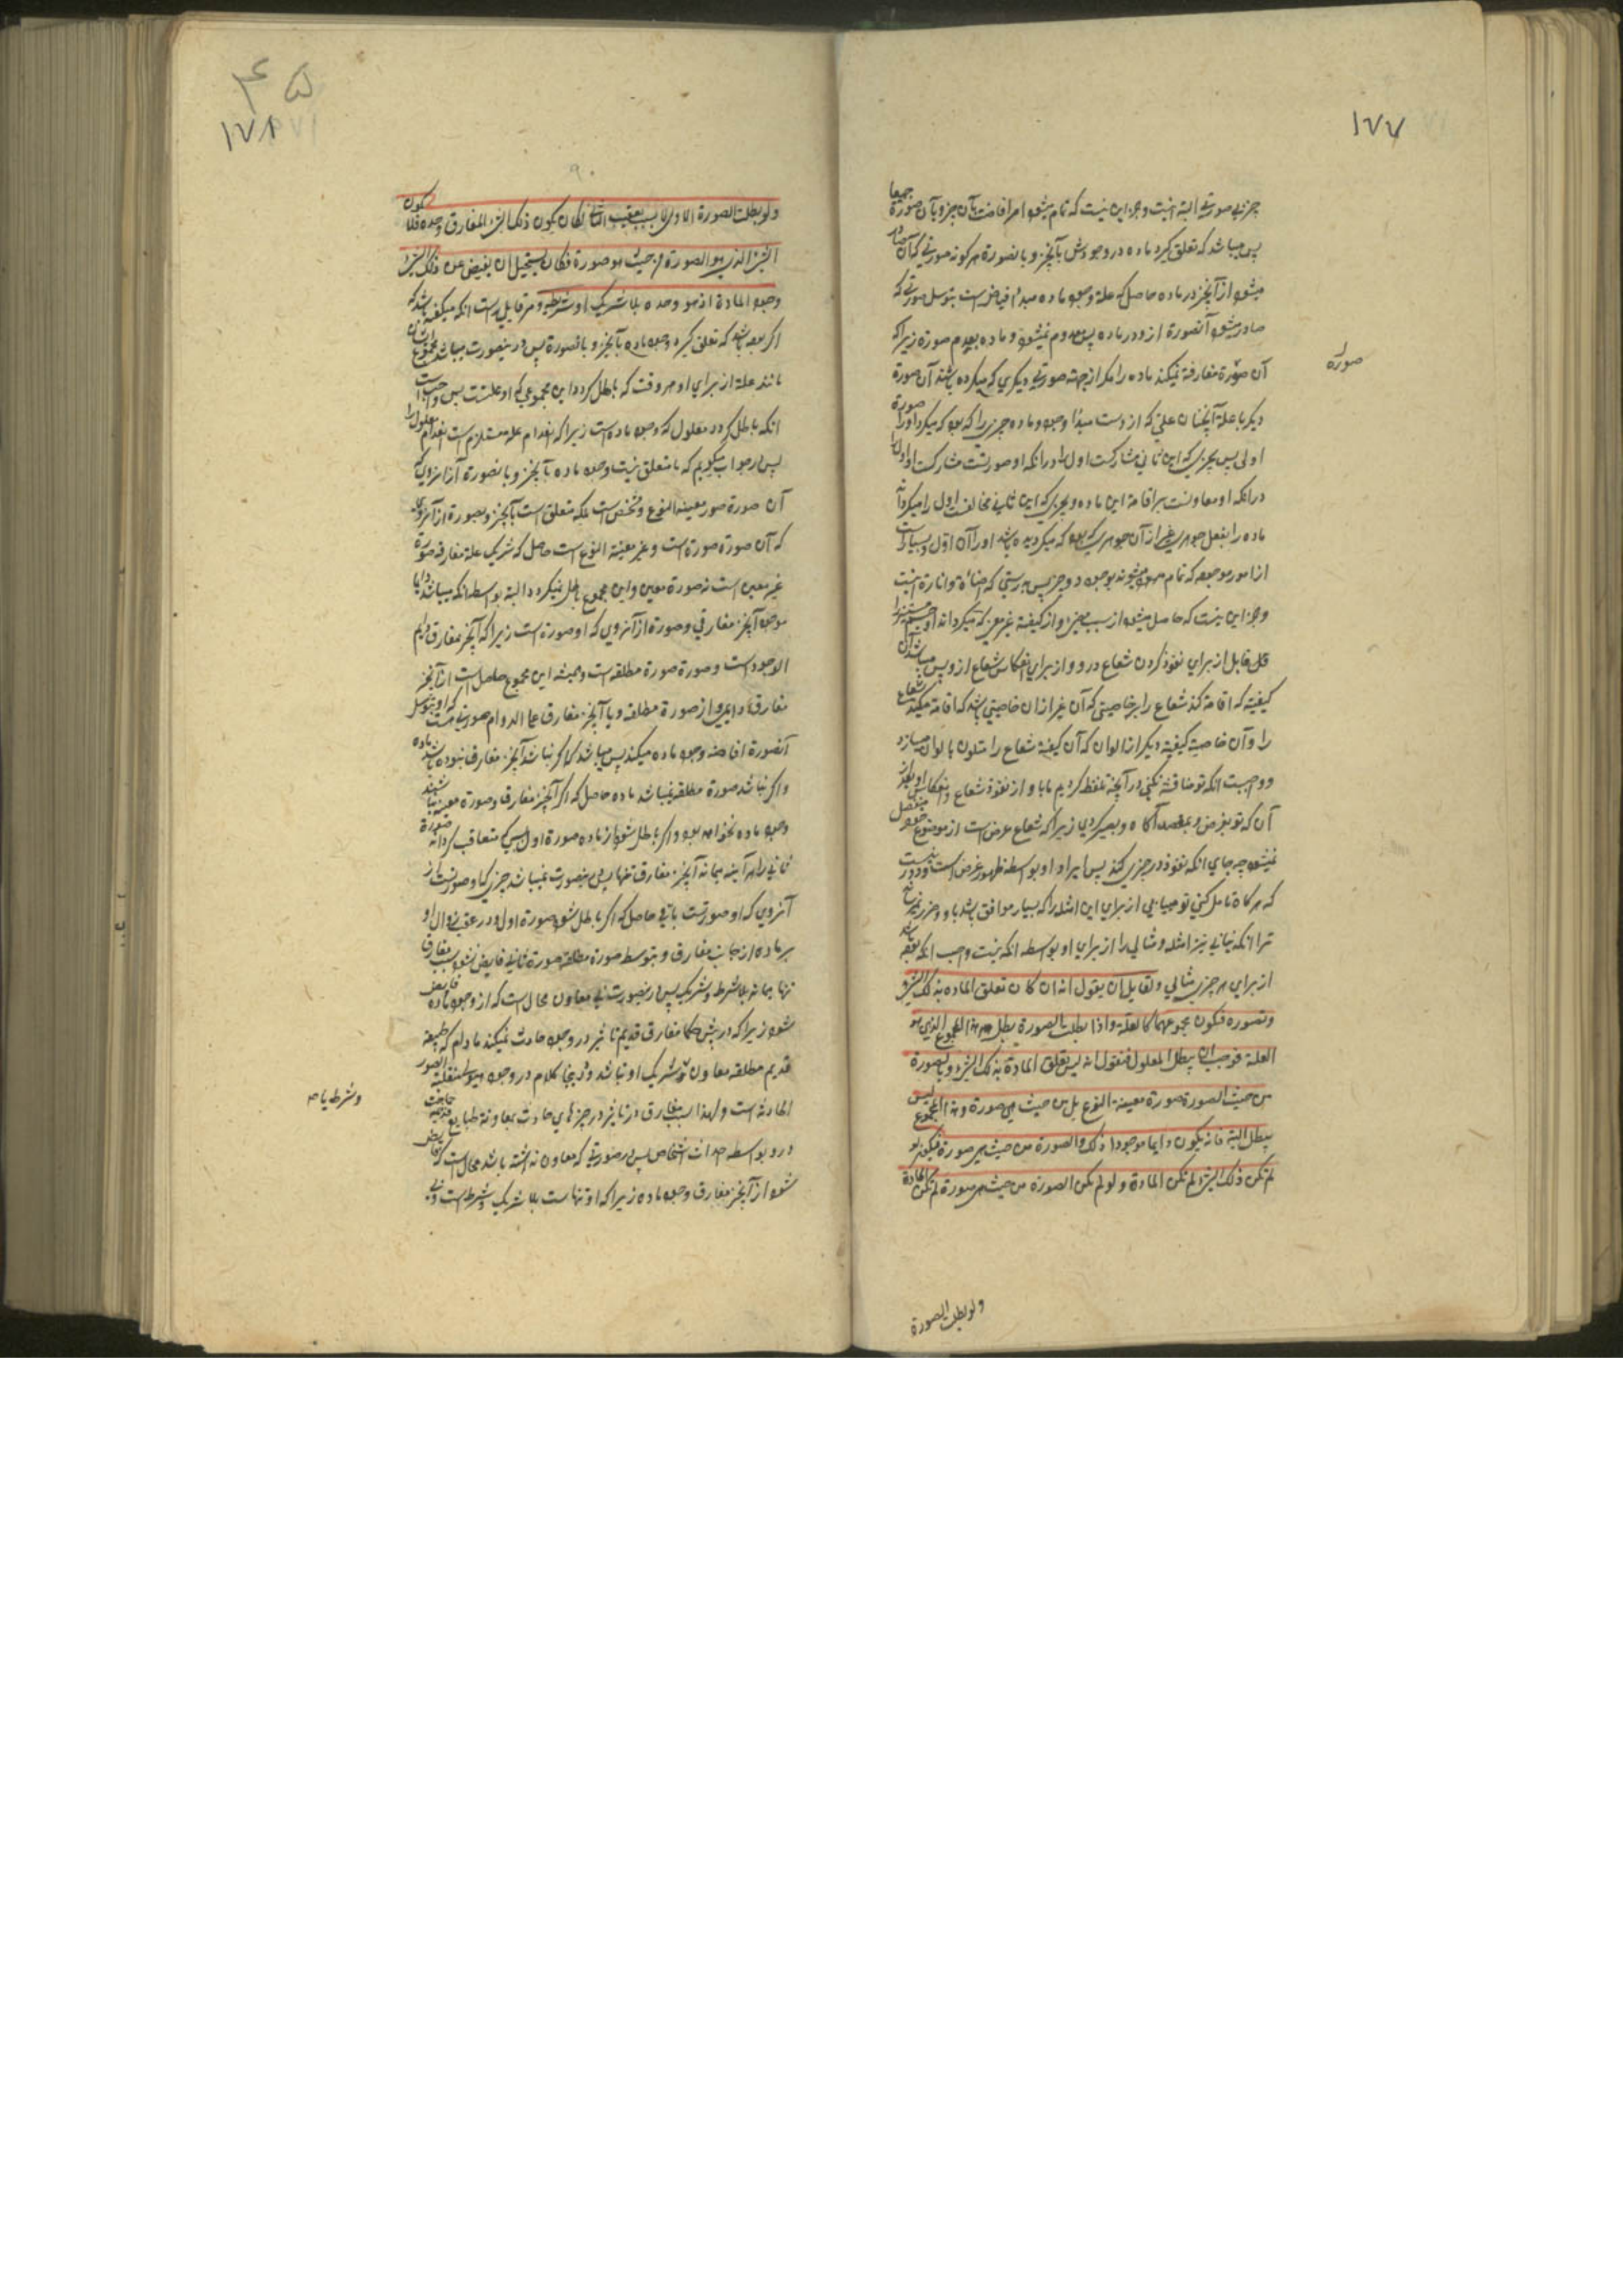 ۱۷۷
چیزی صورتی البته نیست و جز این نیست که تمام میشود امر افاضت بآن چیز و بآن صورة جمیعا
پس میباشد که تعلق گیرد ماده در وجودش بآنچیز و بانصورة هر کونه صورتی که آن صادر
میشود از آنچیز در ماده حاصل که علة وجود ماده مبدأ فیاض است بتوسل صورتی که
صادر میشود آنصورة ازو در ماده پس معدوم نمیشود ماده بعدم صورة زیرا که
آن صورة مفارقة نمیکند ماده را مگر از جهة صورتی دیگری که میکرده باشد آن صورة
صورة
دیگر با علة آنچنان علتی که ازوست مبدأ وجود ماده چیزی را که بود که میکرد او را صورة
اولی پس بچیزی که این ثانی مشارکت اول را در انکه او صورتست مشارکت او اول را
در انکه او معاونست بر اقامة این ماده و بچیزی که این ثانی مخالف اول را میکرداند
ماده را بالفعل جوهری غیر از آن جوهری که بود که میکردیده باشد او را آن اول و بسیاری
از امور موجوده که تمام میشوند بوجود دو چیز پس بدرستی که اضائة و انارة نیست
و جز این نیست که حاصل میشود از سبب مضئ و از کیفیة غیر معین که میکرداند او جسم مستنیر را
قابل از برای نفوذ کردن شعاع درو و از برای انعکاس شعاع ازو پس میباشد آن
کیفیة که اقامة کند شعاع را بر خاصیتی که آن غیر از ان خاصیتی باشد که اقامة میکند شعاع
را و آن خاصیة کیفیة دیگر از الوان که آن کیفیة شعاع را متلون بالوان میسازد
و واجبست انکه تو مناقشه نکنی در آنچه تلفظ کردیم ما باو از نفوذ شعاع و انعکاس او بعد از
آن که تو بغرض و بمقصد آکاه و بصیر کردی زیرا که شعاع عرض است از موضوع خود منفصل
نمیشود چه جای انکه نفوذ در چیزی کند پس ایراد او بواسطه ظهور غرض است و دور نیست
که هرکاه تامل کنی تو میابی از برای این امثله را که بسیار موافق باشد باو و ضرر نمیرساند
ترا انکه نیابی نیز امثله و مثالی را از برای او بواسطه انکه نیست واجب انکه بوده باشد
از برای هر چیزی مثالی ولقایل أن یقول انه ان کان تعلق المادة بذلک الشئ
وبصورة فیکون مجموعهما کالعلة واذا بطلت الصورة بطل هذا المجموع الذی هو
العلة فوجب ان یبطل المعلول فنقول انه لیس تعلق المادة بذلک الشئ وبالصورة
من حیث الصورة صورة معینة النوع بل من حیث هی صورة وهذا المجموع لیس
یبطل البتة فانه یکون دایما موجودا ذلک والصورة من حیث هی صورة فیکون لو
لم یکن ذلک الشئ لم تکن المادة ولو لم تکن الصورة من حیث هی صورة لم تکن المادة
ولو بطلت الصورة
۴۵
۱۷۸
۹۰
ولو بطلت الصورة الاولی لا بسبب تعقیب الثانی لکان یکون ذلک الشئ المفارق وحده فلا یکون
الشئ الذی هو الصورة من حیث هو صورة فکان یستحیل ان یفیض عن ذلک الشئ
وجود المادة اذ هو وحده بلا شریک او شریطة ومر قایل راست انکه میکفته باشد که
اکر بوده باشد که تعلق کیرد وجود ماده بآنچیز و بانصورة پس درینصورت میباشد مجموع ایشان
مانند علة از برای او و هر وقت که باطل کردد این مجموعی که او علتست پس واجب است
انکه باطل کردد معلول که وجود ماده است زیرا که انعدام علة مستلزم است انعدام معلول را
پس در جواب میکویم که ما متعلق نیست وجود ماده بآنچیز و بانصورة از انروی که
آن صورة صورة معینة النوع و شخص است بلکه متعلق است بآنچیز و بصورة از انروی
که آن صورة صورة است و غیر معینة النوع است حاصل که شریک علة مفارقه صورة
غیر معین است نه صورة معین و این مجموع باطل نمیکردد البته بواسطه انکه میباشد دایما
موجود آنچیز مفارقی و صورة از آنروی که او صورة است زیرا که آنچیز مفارق دایم
الوجود است و صورة صورة مطلقه است و همیشه این مجموع حاصل است از آنچیز
مفارق دایمی و از صورة مطلقه و با آنچیز مفارق علی الدوام صورتی هست که او بتوسل
آنصورة افاضه وجود ماده میکند پس میباشد که اکر نباشد آنچیز مفارق نبوده باشد ماده
و اکر نباشد صورة مطلقه نمیباشد ماده حاصل که اکر آنچیز مفارق و صورة معینه نباشند
وجود ماده نخواهد بود و اکر باطل شود از ماده صورة اول بی متعاقب کردانه صورة
ثانی را هر آینه بماند آنچیز مفارق تنها پس درینصورت نمیباشد چیزی که او صورتست از
آنروی که او صورتست باقی حاصل که اکر باطل شود صورة اول و در عقب زوال او
بر ماده از جانب مفارق و بتوسط صورة مطلقه صورة ثانی فایض نشود سبب مفارق
تنها بماند بلا شرط و شریک پس درینصورت بی معاون محال است که از وجود ماده فایض
شود زیرا که در پیش حکما مفارق قدیم تاثیر در وجود حادث نمیکند مادام که طبیعة
قدیم مطلقه معاون و شریک او نباشد و اینجا کلام در وجود هیولی متقلبة الصور
الحادثه است و لهذا سبب مفارق در تاثیر در چیزهای حادث بمعاونة طبایع قدیمه حاجت
درو بواسطه احداث اشخاص پس در صورتی که معاون نداشته باشد محال است که فایض
شود از آنچیز مفارق وجود ماده زیرا که او تنهاست بلا شریک و شرط است
و شرط یا مه